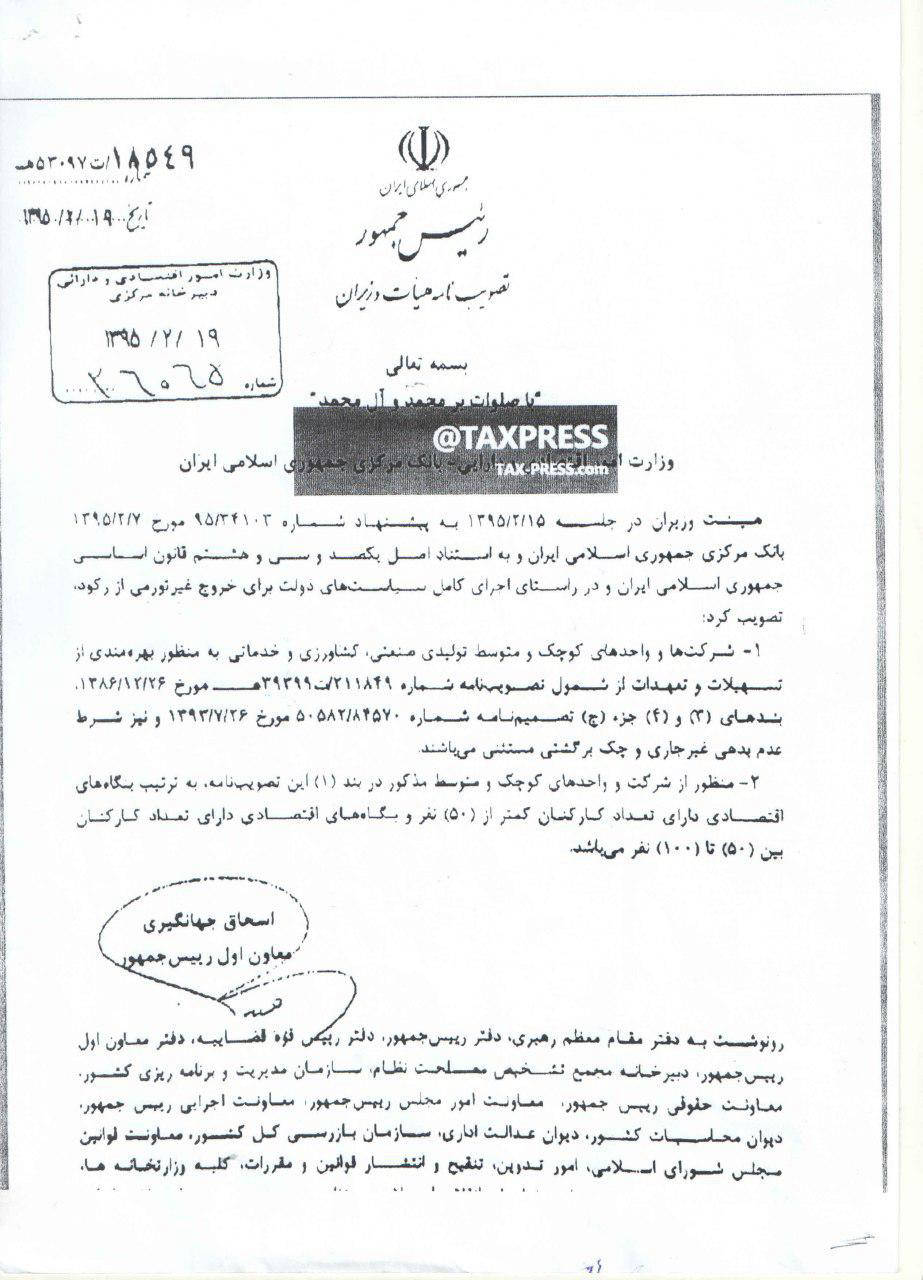 ۱۸۵۴۹/ت۵۳۰۹۷هـ
شماره
تاریخ ۱۳۹۵/۲/۱۹
جمهوری اسلامی ایران
رئیس جمهور
تصویب نامه هیأت وزیران
وزارت امور اقتصادی و دارائی
دبیرخانه مرکزی
۱۳۹۵/۲/۱۹
شماره ۳۶۰۶۵
بسمه تعالی
"با صلوات بر محمد و آل محمد"
@TAXPRESS
TAX-PRESS.com
وزارت امور اقتصادی و دارایی- بانک مرکزی جمهوری اسلامی ایران
هیئت وزیران در جلسه ۱۳۹۵/۲/۱۵ به پیشنهاد شماره ۹۵/۳۴۱۰۳ مورخ ۱۳۹۵/۲/۷
بانک مرکزی جمهوری اسلامی ایران و به استناد اصل یکصد و سی و هشتم قانون اساسی
جمهوری اسلامی ایران و در راستای اجرای کامل سیاست‌های دولت برای خروج غیرتورمی از رکود،
تصویب کرد:
۱- شرکت‌ها و واحدهای کوچک و متوسط تولیدی صنعتی، کشاورزی و خدماتی به منظور بهره‌مندی از
تسهیلات و تعهدات از شمول تصویب‌نامه شماره ۲۱۱۸۴۹/ت۳۹۳۹۹هـ مورخ ۱۳۸۶/۱۲/۲۶،
بندهای (۳) و (۴) جزء (ج) تصمیم‌نامه شماره ۵۰۵۸۲/۸۴۵۷۰ مورخ ۱۳۹۳/۷/۲۶ و نیز شرط
عدم بدهی غیرجاری و چک برگشتی مستثنی می‌باشند.
۲- منظور از شرکت و واحدهای کوچک و متوسط مذکور در بند (۱) این تصویب‌نامه، به ترتیب بنگاه‌های
اقتصادی دارای تعداد کارکنان کمتر از (۵۰) نفر و بگاه‌های اقتصادی دارای تعداد کارکنان
بین (۵۰) تا (۱۰۰) نفر می‌باشد.
اسحاق جهانگیری
معاون اول رییس‌جمهور
رونوشت به دفتر مقام معظم رهبری، دفتر رییس‌جمهور، دفتر رییس قوه قضاییه، دفتر معاون اول
رییس‌جمهور، دبیرخانه مجمع تشخیص مصلحت نظام، سازمان مدیریت و برنامه ریزی کشور،
معاونت حقوقی رییس جمهور، معاونت امور مجلس رییس‌جمهور، معاونت اجرایی رییس جمهور،
دیوان محاسبات کشور، دیوان عدالت اداری، سازمان بازرسی کل کشور، معاونت قوانین
مجلس شورای اسلامی، امور تدوین، تنقیح و انتشار قوانین و مقررات، کلیه وزارتخانه ها،